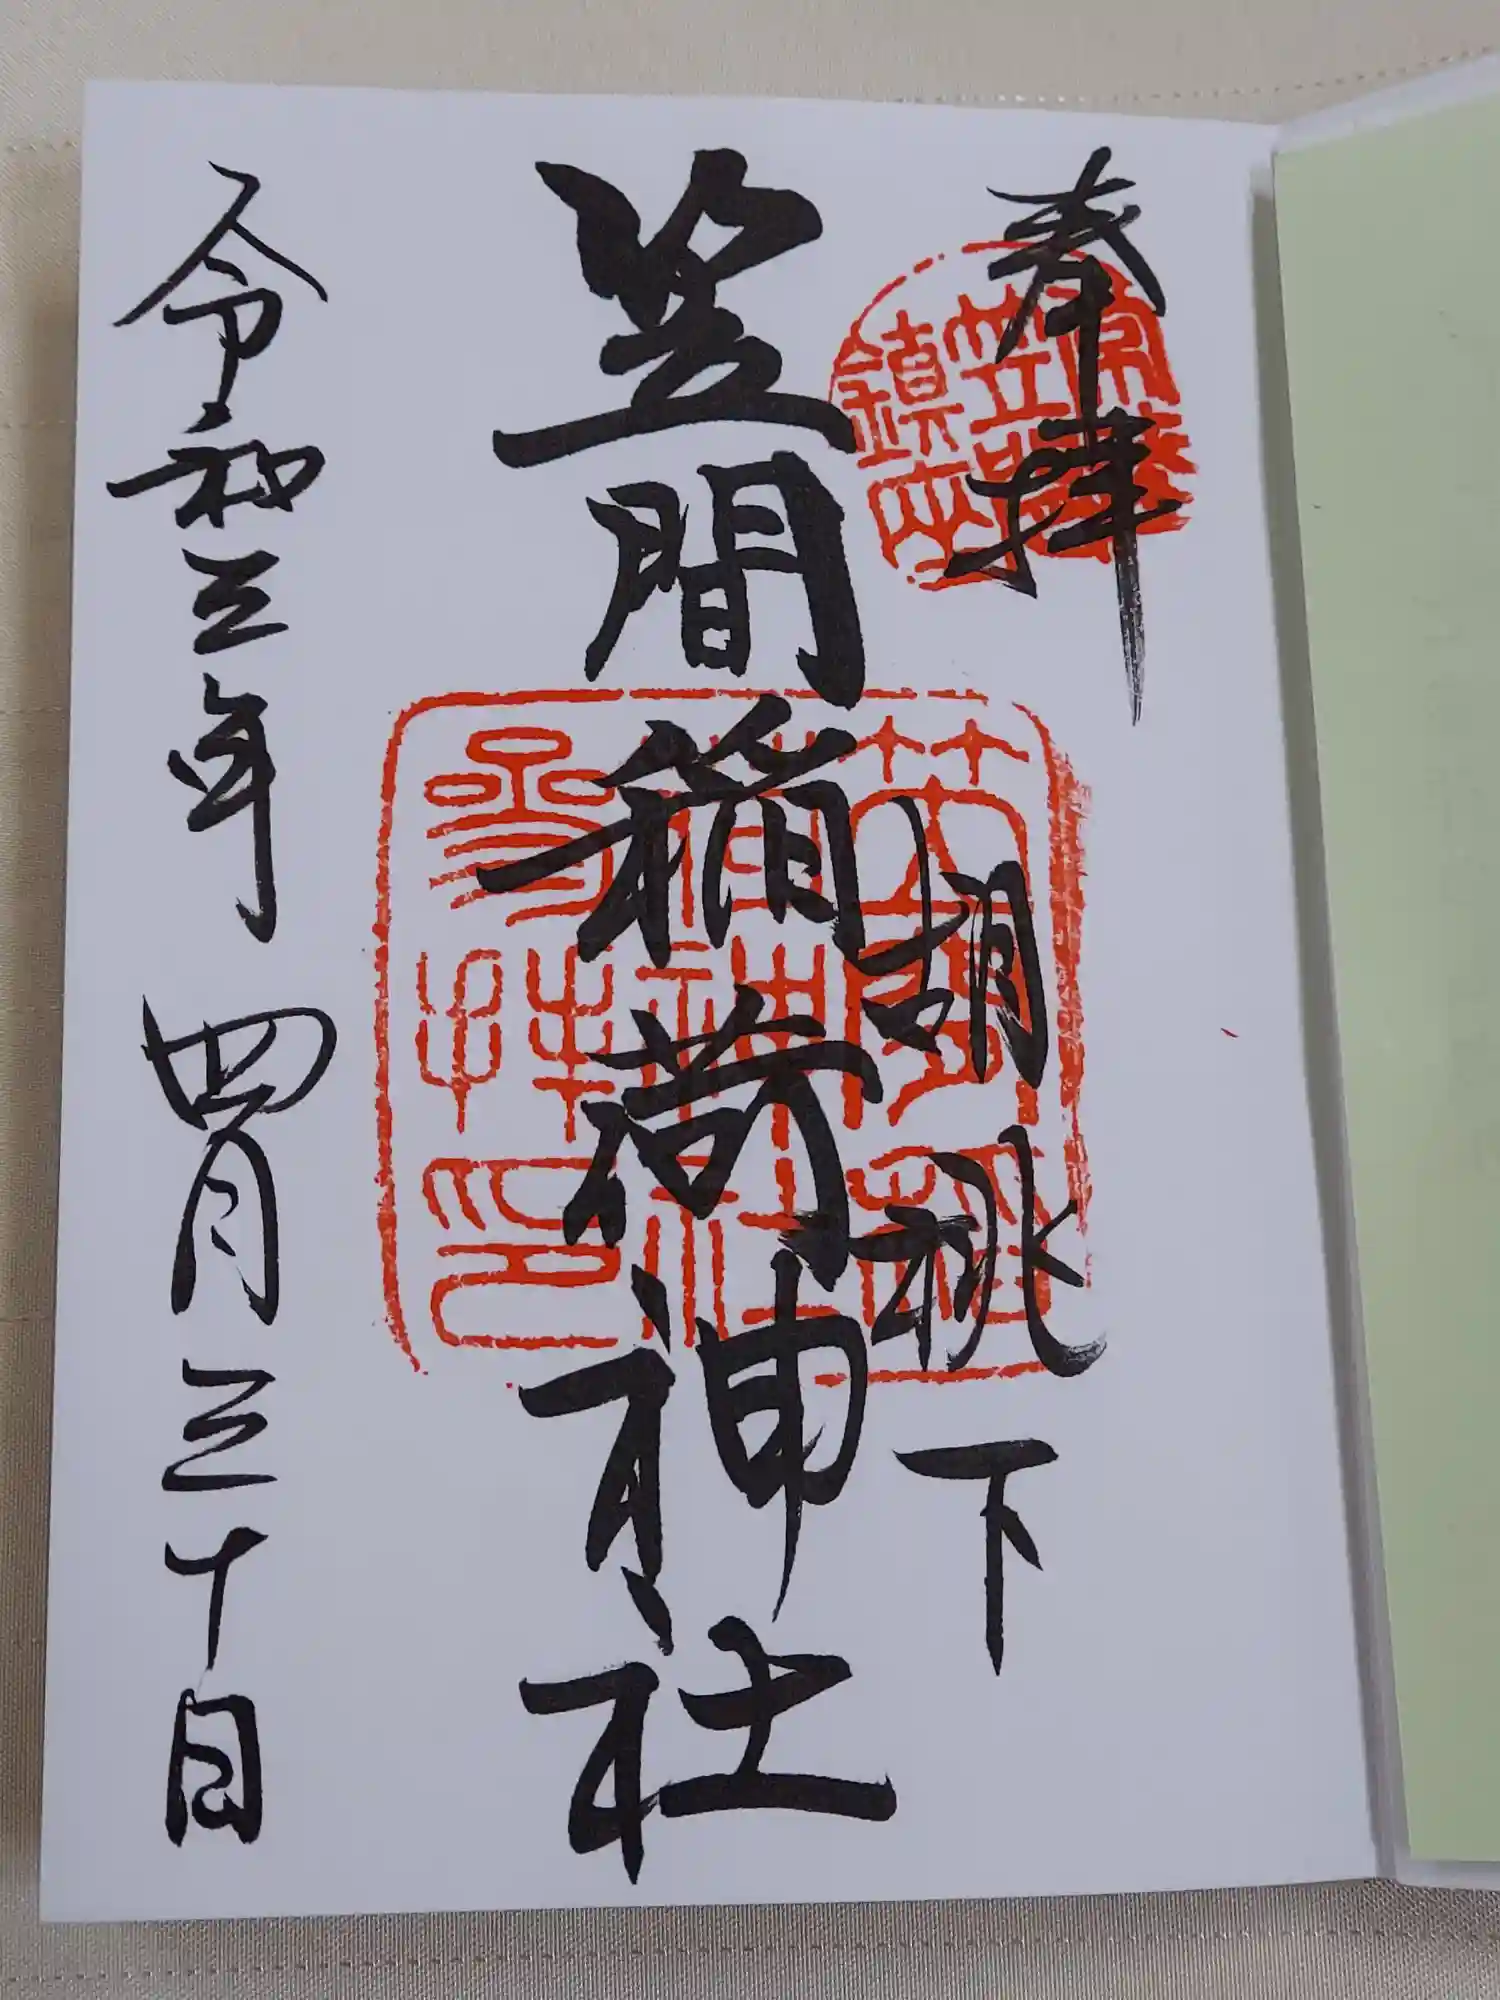 奉拝
胡桃下
笠間稲荷神社
令和三年 四月三十日
常陸
笠間
鎮座
笠間稲
荷神社
参拝印